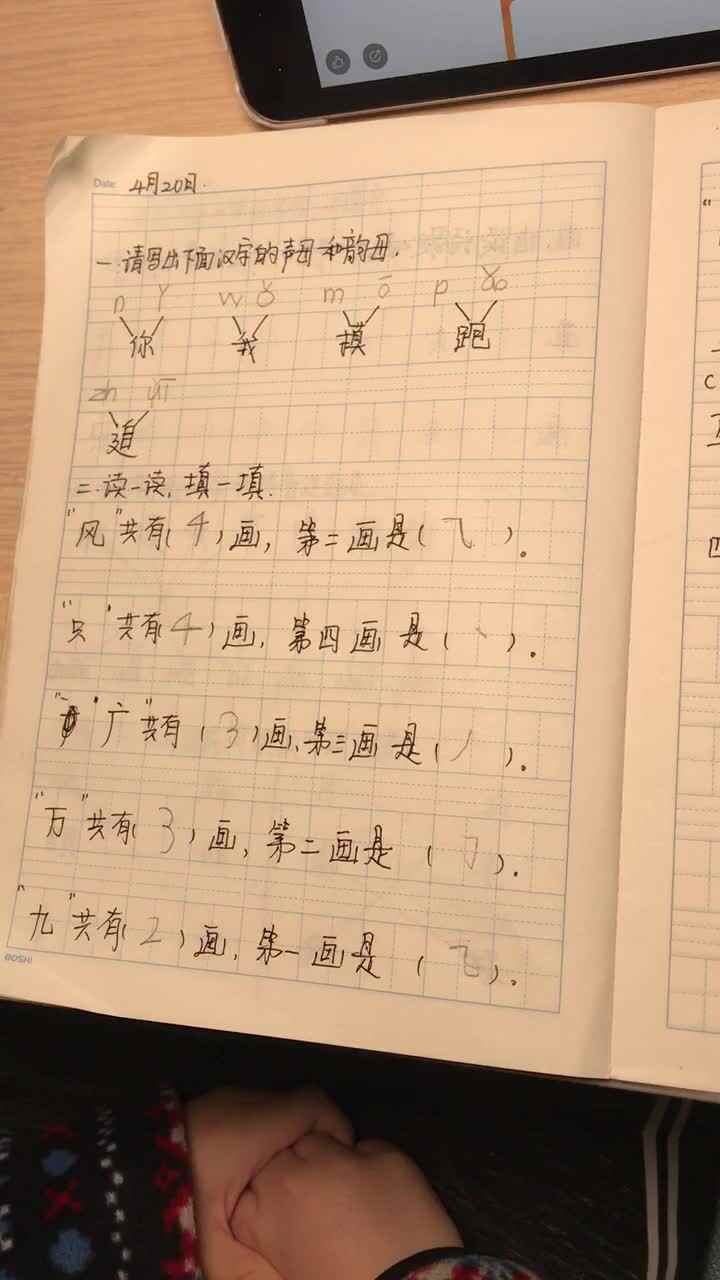 Date: 4月20日.
一.请写出下面汉字的声母和韵母.
n ǐ w ǒ m ō p ǎo
你 我 摸 跑
zh uī
追
二.读一读,填一填.
"风"共有(4)画,第二画是(⺄)。
"只"共有(4)画,第四画是(丶)。
"广"共有(3)画,第三画是(丿)。
"万"共有(3)画,第二画是(𠃌)。
"九"共有(2)画,第一画是(⺄)。
BOSHI
"
C
四